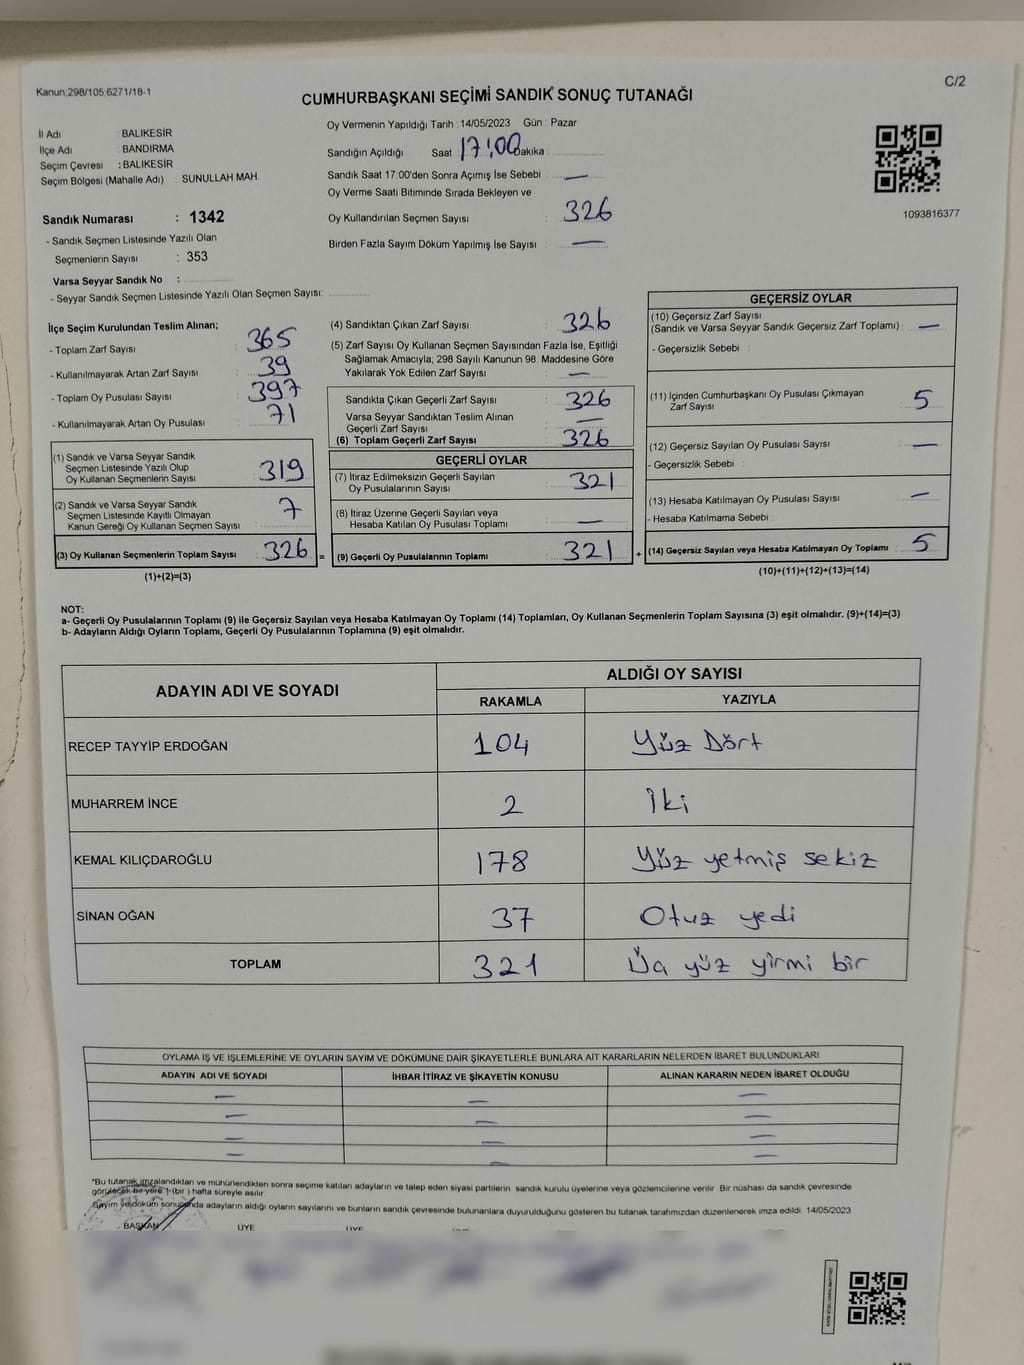 Kanun.298/105.6271/18-1
C/2
CUMHURBAŞKANI SEÇİMİ SANDIK SONUÇ TUTANAĞI
İl Adı : BALIKESİR
İlçe Adı : BANDIRMA
Seçim Çevresi : BALIKESİR
Seçim Bölgesi (Mahalle Adı) SUNULLAH MAH.
Sandık Numarası : 1342
- Sandık Seçmen Listesinde Yazılı Olan
Seçmenlerin Sayısı : 353
Varsa Seyyar Sandık No :
- Seyyar Sandık Seçmen Listesinde Yazılı Olan Seçmen Sayısı:
Oy Vermenin Yapıldığı Tarih : 14/05/2023 Gün : Pazar
Sandığın Açıldığı Saat 17:00 Dakika
Sandık Saat 17:00'den Sonra Açımış İse Sebebi : —
Oy Verme Saati Bitiminde Sırada Bekleyen ve
Oy Kullandırılan Seçmen Sayısı : 326
Birden Fazla Sayım Döküm Yapılmış İse Sayısı : —
1093816377
İlçe Seçim Kurulundan Teslim Alınan;
- Toplam Zarf Sayısı : 365
- Kullanılmayarak Artan Zarf Sayısı : 39
- Toplam Oy Pusulası Sayısı : 397
- Kullanılmayarak Artan Oy Pusulası : 71
(1) Sandık ve Varsa Seyyar Sandık
Seçmen Listesinde Yazılı Olup
Oy Kullanan Seçmenlerin Sayısı : 319
(2) Sandık ve Varsa Seyyar Sandık
Seçmen Listesinde Kayıtlı Olmayan
Kanun Gereği Oy Kullanan Seçmen Sayısı : 7
(3) Oy Kullanan Seçmenlerin Toplam Sayısı : 326 =
(1)+(2)=(3)
(4) Sandıktan Çıkan Zarf Sayısı : 326
(5) Zarf Sayısı Oy Kullanan Seçmen Sayısından Fazla İse, Eşitliği
Sağlamak Amacıyla; 298 Sayılı Kanunun 98. Maddesine Göre
Yakılarak Yok Edilen Zarf Sayısı : —
Sandıkta Çıkan Geçerli Zarf Sayısı : 326
Varsa Seyyar Sandıktan Teslim Alınan
Geçerli Zarf Sayısı : —
(6) Toplam Geçerli Zarf Sayısı : 326
GEÇERLİ OYLAR
(7) İtiraz Edilmeksizin Geçerli Sayılan
Oy Pusulalarının Sayısı : 321
(8) İtiraz Üzerine Geçerli Sayılan veya
Hesaba Katılan Oy Pusulası Toplamı : —
(9) Geçerli Oy Pusulalarının Toplamı : 321 +
GEÇERSİZ OYLAR
(10) Geçersiz Zarf Sayısı
(Sandık ve Varsa Seyyar Sandık Geçersiz Zarf Toplamı) : —
- Geçersizlik Sebebi :
(11) İçinden Cumhurbaşkanı Oy Pusulası Çıkmayan
Zarf Sayısı : 5
(12) Geçersiz Sayılan Oy Pusulası Sayısı : —
- Geçersizlik Sebebi :
(13) Hesaba Katılmayan Oy Pusulası Sayısı : —
- Hesaba Katılmama Sebebi :
(14) Geçersiz Sayılan veya Hesaba Katılmayan Oy Toplamı : 5
(10)+(11)+(12)+(13)=(14)
NOT:
a- Geçerli Oy Pusulalarının Toplamı (9) ile Geçersiz Sayılan veya Hesaba Katılmayan Oy Toplamı (14) Toplamları, Oy Kullanan Seçmenlerin Toplam Sayısına (3) eşit olmalıdır. (9)+(14)=(3)
b- Adayların Aldığı Oyların Toplamı, Geçerli Oy Pusulalarının Toplamına (9) eşit olmalıdır.
ADAYIN ADI VE SOYADI ALDIĞI OY SAYISI
RAKAMLA YAZIYLA
RECEP TAYYİP ERDOĞAN 104 Yüz Dört
MUHARREM İNCE 2 İki
KEMAL KILIÇDAROĞLU 178 Yüz yetmiş sekiz
SİNAN OĞAN 37 Otuz yedi
TOPLAM 321 Üç yüz yirmi bir
OYLAMA İŞ VE İŞLEMLERİNE VE OYLARIN SAYIM VE DÖKÜMÜNE DAİR ŞİKAYETLERLE BUNLARA AİT KARARLARIN NELERDEN İBARET BULUNDUKLARI
ADAYIN ADI VE SOYADI İHBAR İTİRAZ VE ŞİKAYETİN KONUSU ALINAN KARARIN NEDEN İBARET OLDUĞU
— — —
— — —
— — —
— — —
*Bu tutanak imzalandıktan ve mühürlendikten sonra seçime katılan adayların ve talep eden siyasi partilerin sandık kurulu üyelerine veya gözlemcilerine verilir. Bir nüshası da sandık çevresinde
görülecek bir yere 1 (bir ) hafta süreyle asılır.
Sayım ve döküm sonucunda adayların aldığı oyların sayılarını ve bunların sandık çevresinde bulunanlara duyurulduğunu gösteren bu tutanak tarafımızdan düzenlenerek imza edildi. 14/05/2023
BAŞKAN ÜYE ÜYE